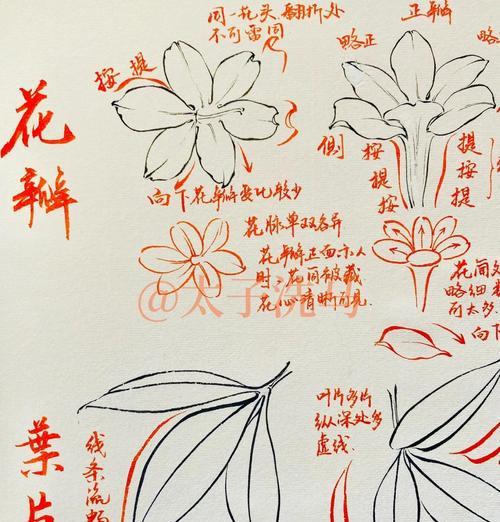 花瓣
同一花头翻折处
不可雷同
按提
正瓣
略正
侧
按提按
提按提
向下花瓣变化较少
花脉单双各异
花瓣正面示人
时,花筒被藏
花心清晰可见.
@太子洗马
花筒处
略细
可太多.
向下
葉片
线条流畅
叶片多片
纵深处多
虚线.